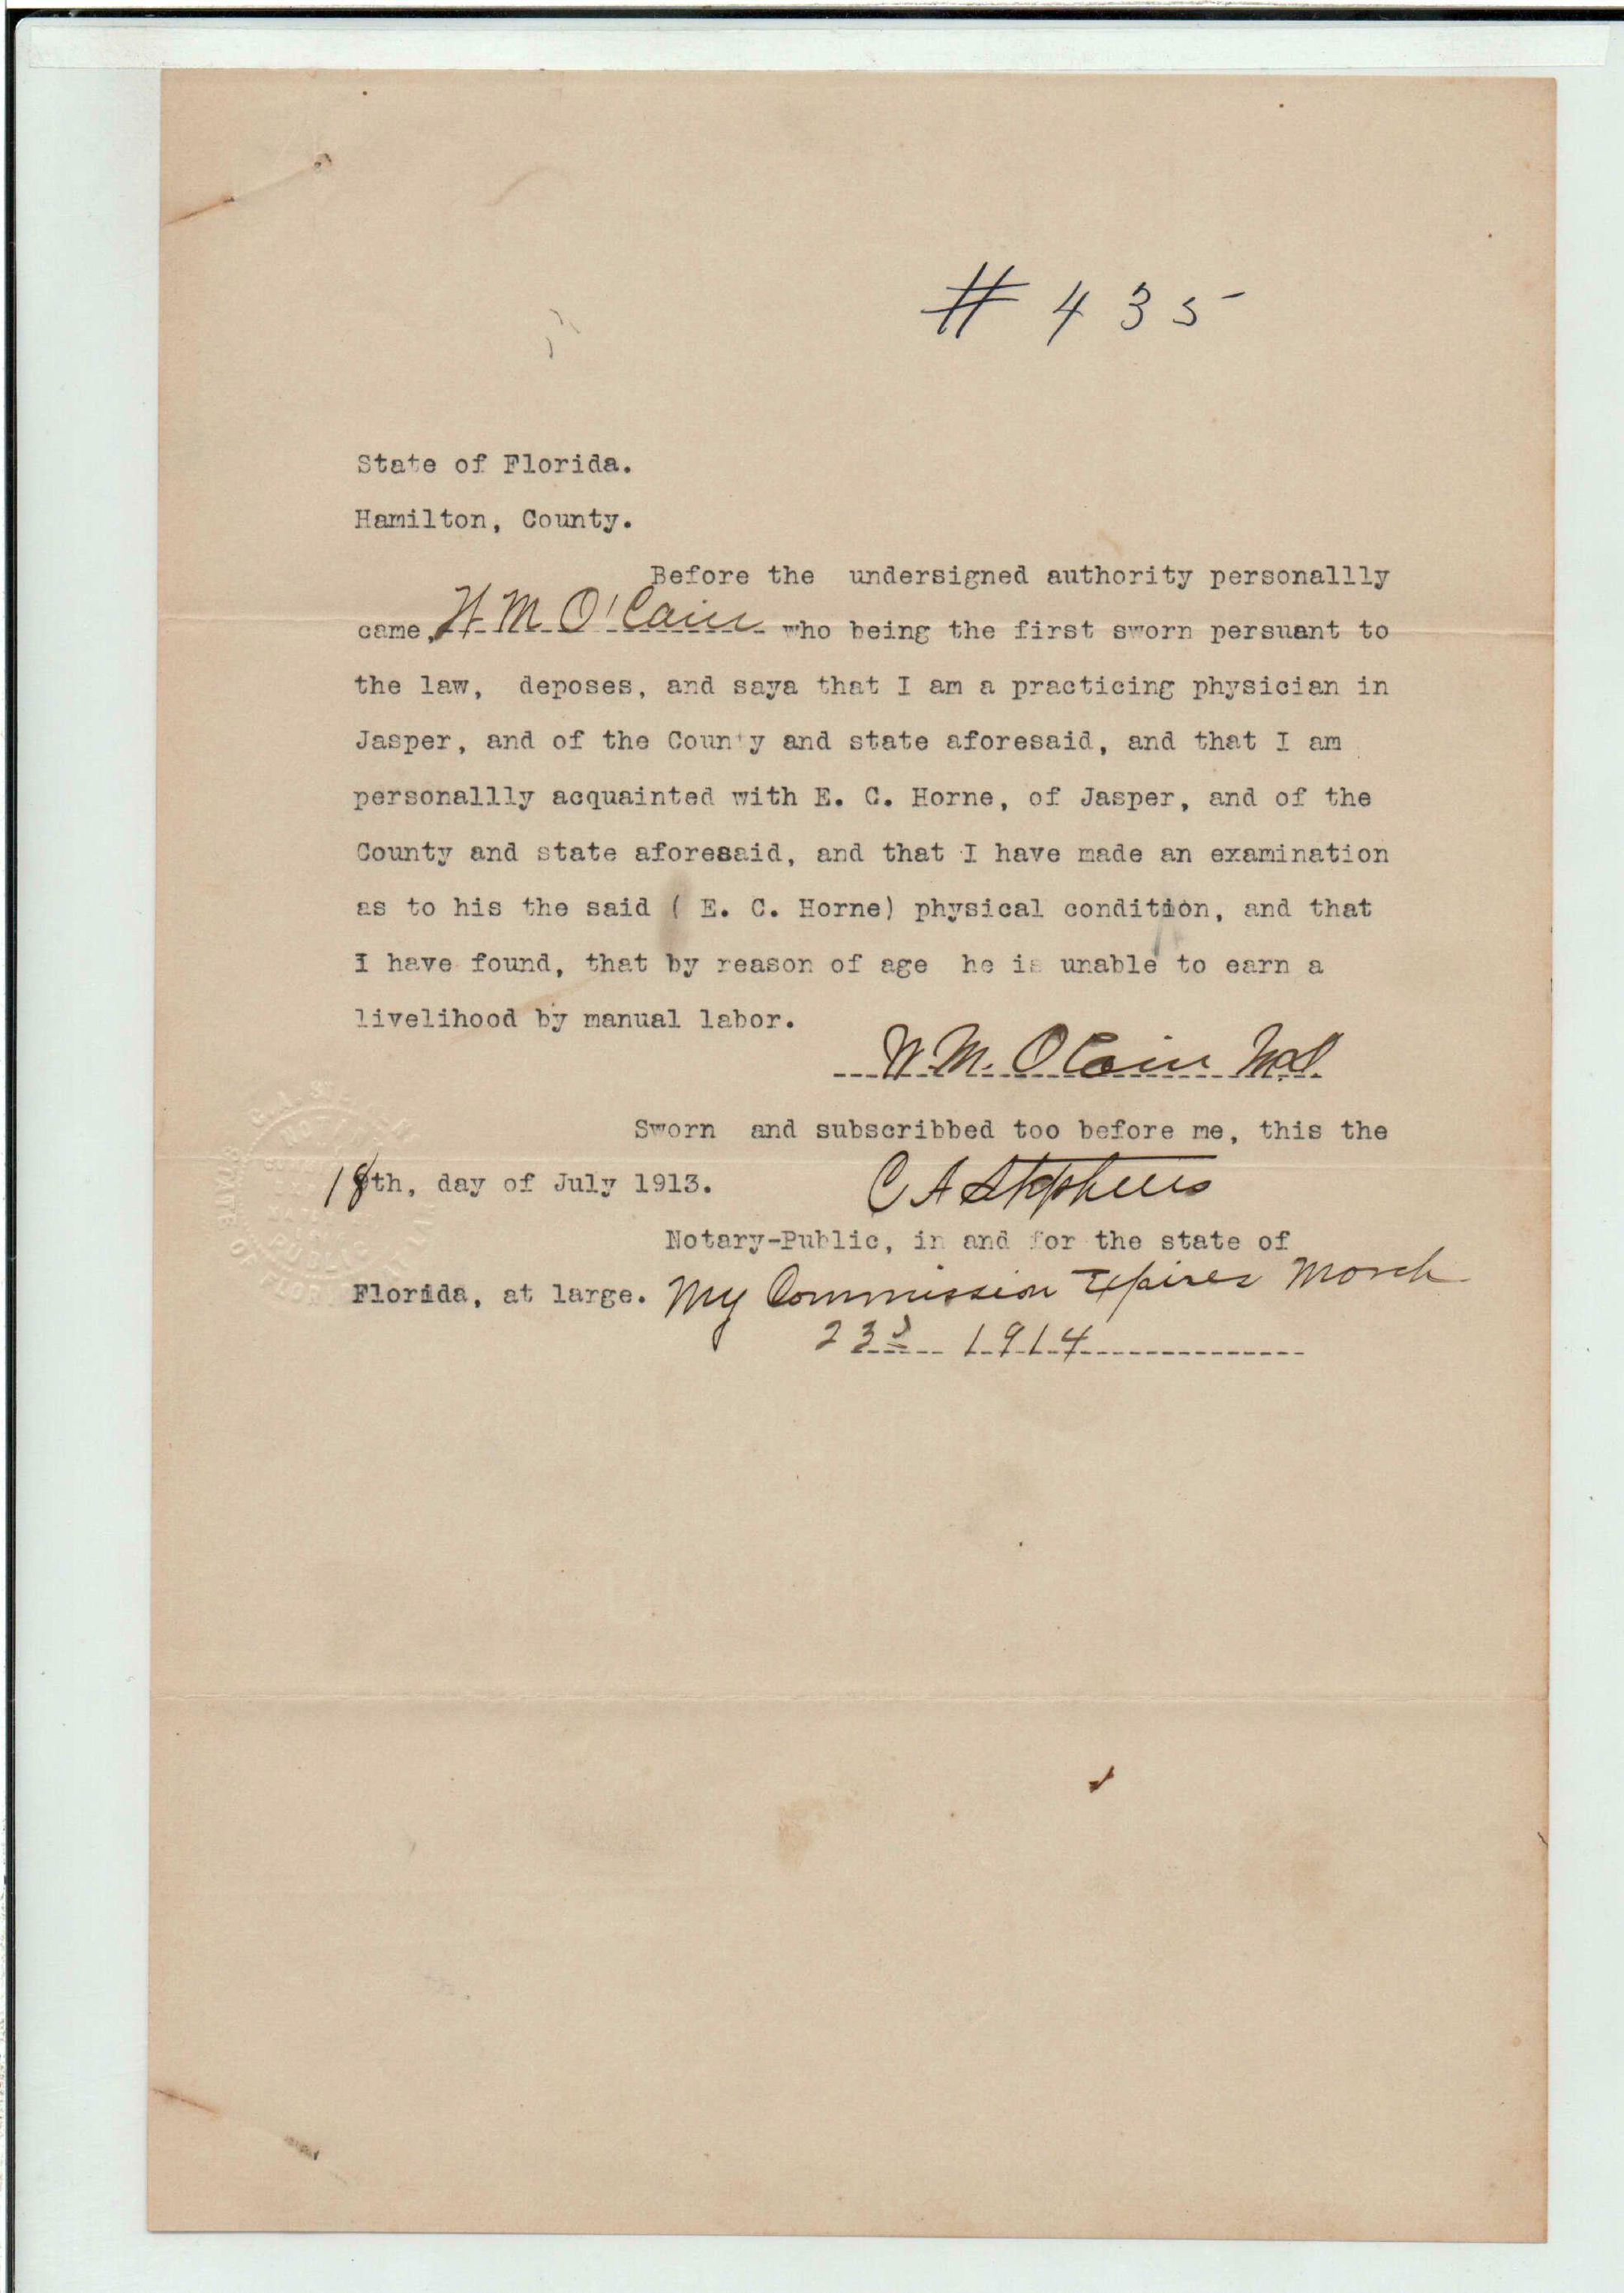 # 435
State of Florida.
Hamilton, County.
Before the undersigned authority personallly
came, H M O'Cain who being the first sworn persuant to
the law, deposes, and saya that I am a practicing physician in
Jasper, and of the County and state aforesaid, and that I am
personallly acquainted with E. C. Horne, of Jasper, and of the
County and state aforesaid, and that I have made an examination
as to his the said ( E. C. Horne) physical condition, and that
I have found, that by reason of age he is unable to earn a
livelihood by manual labor.
H. M. O Cain M.D.
Sworn and subscribbed too before me, this the
18th, day of July 1913.
C A Stephens
Notary-Public, in and for the state of
Florida, at large. My Commission Expires March
23d 1914
NOTARY
PUBLIC
STATE OF FLORIDA